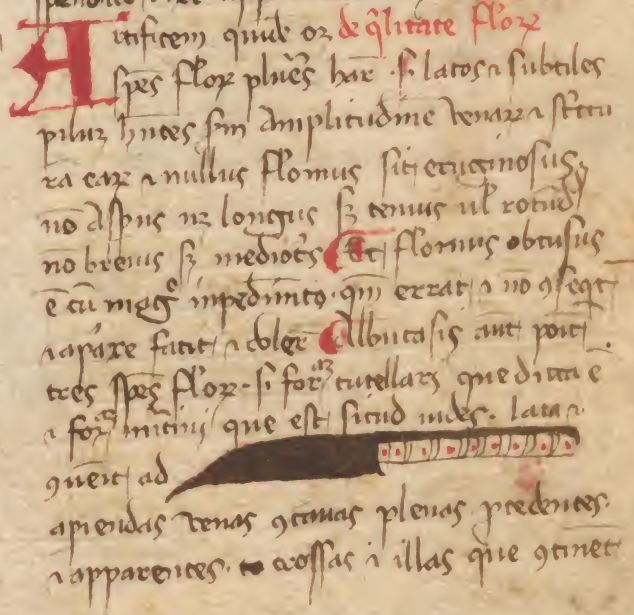 Artificem quidē oz de q̃litate floꝝ
sp̄es floꝝ plures har̄ · s. latos ⁊ subtiles
pilum hñtes sm̄ Amplitudinē venaꝝ ⁊ strictu
ra eaꝝ ⁊ nullus flomus sit eruginosus
nō Asp̄us nz longus sꝫ tenuis ul̓ rotūd
nō breuis sꝫ mediocr̄s Et flomus obtusus
ē cū mag° inpedimīto · qm̄ errat ⁊ nō ꝯseqt̄
⁊ apare facit ⁊ doler̄ Albucasis aut poīt
tres sp̄es floꝝ · s. forᵃꝫ cutellaris que dicta ē
⁊ forᵃꝫ que est sicud uides · lata ⁊
ꝯuēit ad
apiendas venas ꝯcauas plenas p̄cedentes ·
⁊ apparentes · grossas ⁊ illas que ꝯtinēt